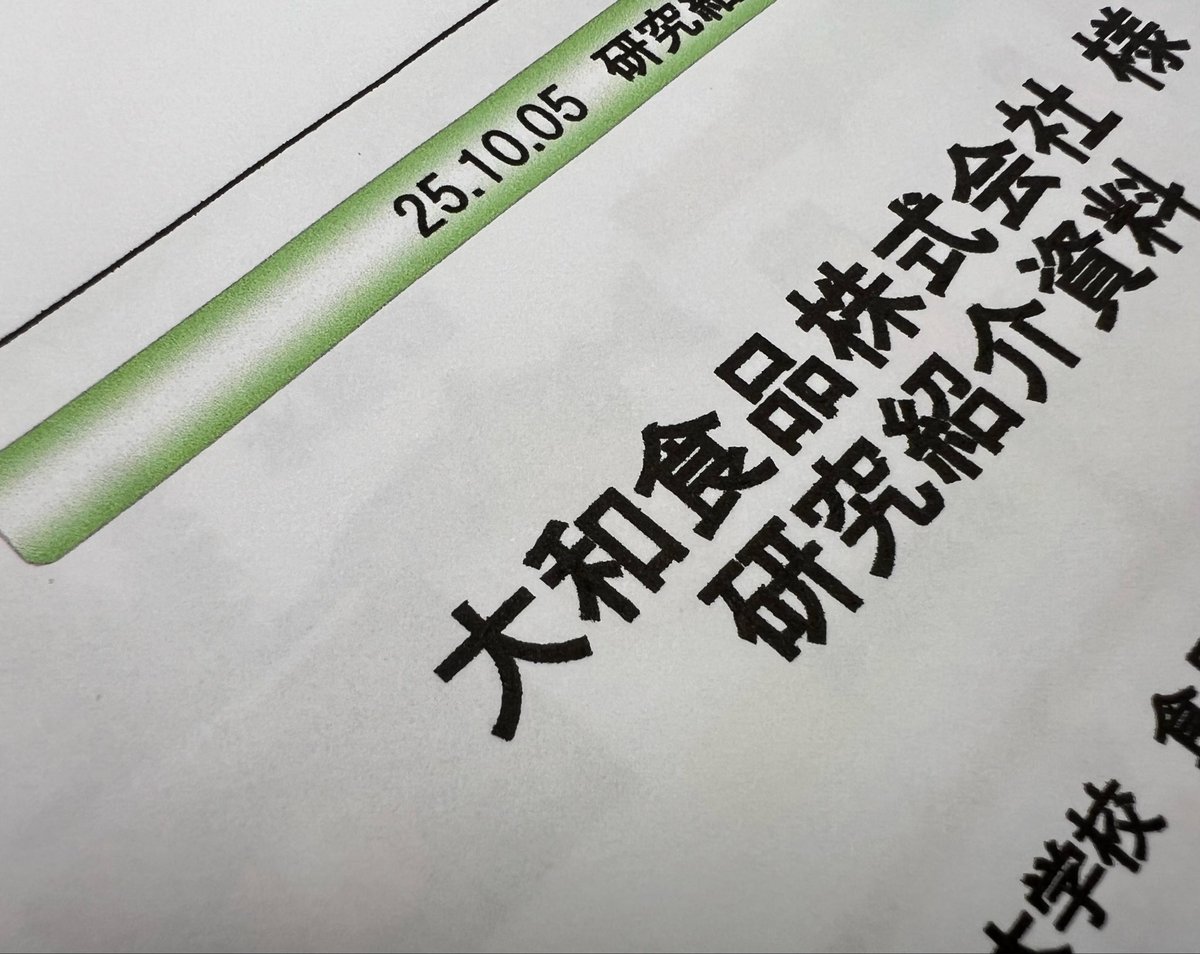 25.10.05 研究紹
大和食品株式会社 様
研究紹介資料
大学校 食